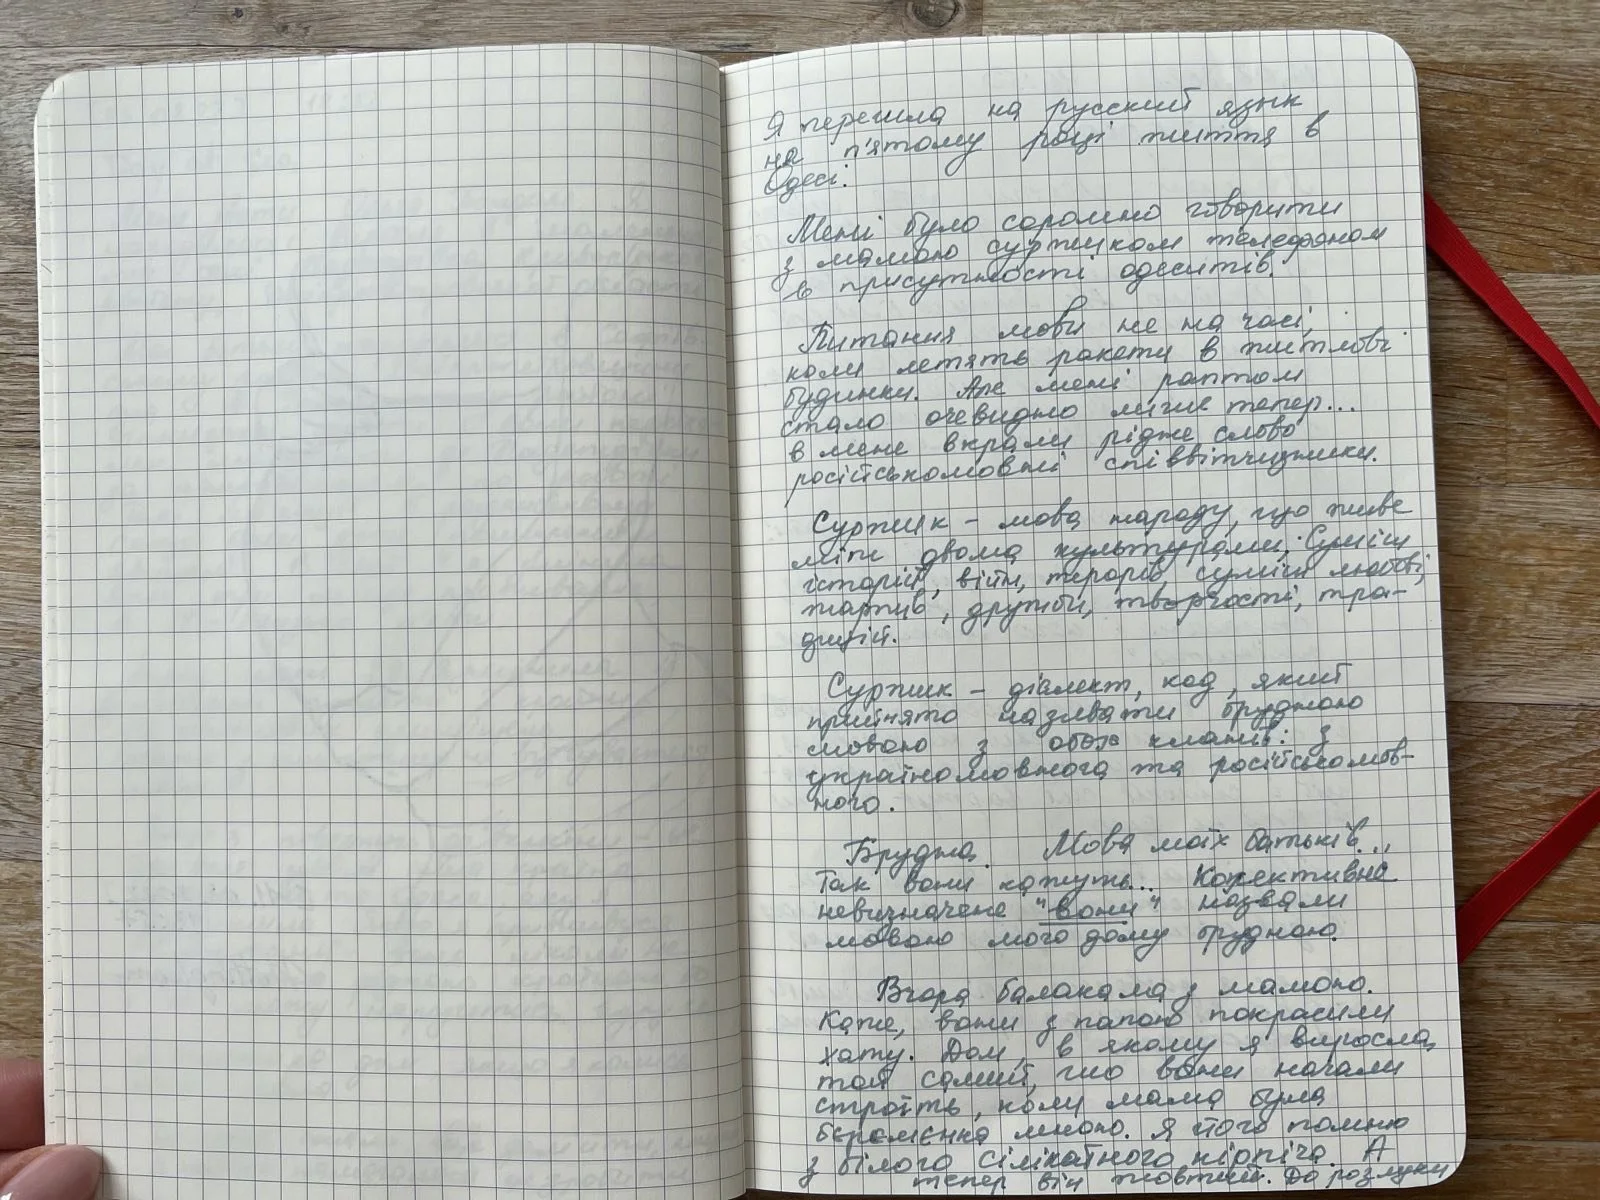 Я перешла на русский язык
на п'ятому році життя в
Одесі.
Мені було соромно говорити
з мамою суржиком телефоном
в присутності одеситів.
Питання мови не на часі,
коли летять ракети в житлові
будинки. Але мені раптом
стало очевидно лише тепер...
в мене вкрали рідне слово
російськомовні співвітчизники.
Суржик – мова народу, що живе
між двома культурами. Суміш
історій, війн, терорів, суміш любові,
жартів, дружби, творчості, тра-
дицій.
Суржик – діалект, код, який
прийнято називати брудною
мовою з обох кланів: з
україномовного та російськомов-
ного.
Брудна. Мова моїх батьків...
Так вони кажуть... Колективне
невизначене "вони" назвали
мовою мого дому брудною.
Вчора балакала з мамою.
Каже, вони з папою покрасили
хату. Дом, в якому я виросла,
той самий, шо вони начали
строїть, коли мама була
беремєнна мною. Я його помню
з білого сілікатного кірпіча. А
тепер він жовтий. До розлуки